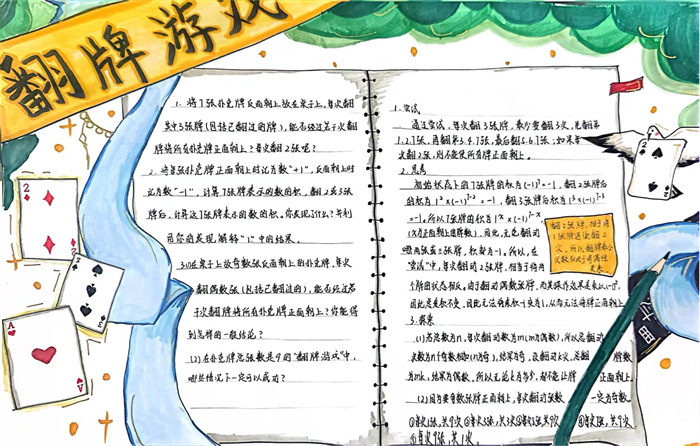 翻牌游戏
1. 将7张扑克牌反面朝上放在桌子上,每次翻
其中3张牌(包括已翻过的牌),能否经过若干次翻
牌将所有扑克牌正面朝上?每次翻2张呢?
2. 将每张扑克牌正面朝上时记为数"+1",反面朝上时
记为数"-1",计算7张牌表示的数的积,翻2或3张
牌后,计算这7张牌表示的数的积,你发现了什么?并利
用你的发现,解释"1."中的结果。
3.(1)在桌子上放奇数张反面朝上的扑克牌,每次
翻偶数张(包括已翻过的牌),能否经过若
干次翻牌将所有扑克牌正面朝上?你能得
到怎样的一般结论?
(2)在扑克牌总张数是9的"翻牌游戏"中,
哪些情况下一定可以成功?
1. 尝试
通过尝试,每次翻3张牌,最少要翻3次,先翻第
1.2.7张,再翻第3.4.7张,最后翻5.6.7张,如果每
次翻2张,则不能使所有牌正面朝上。
2. 思考
初始状态下的7张牌的积为(-1)⁷=-1,翻2张牌后
的积为1²×(-1)⁷⁻²=-1,翻3张牌后积为1³×(-1)⁷⁻³
=1,所以7张牌的积为1ˣ×(-1)⁷⁻ˣ
(x为正面朝上总牌数),因此,无论翻动
几张
"尝试"中,每次翻动2张牌,相当于将两
个牌的状态相反,由于翻动偶数张牌,
因此总乘积不变,因此无法将乘积-1变为1,从而无法将牌正面朝上
翻2张牌,相当于将
1张牌连续翻2
次,所以翻牌和
次数和式子有偶性
关系
3. 探索
(1)若总数为n,每次翻动数为m(m为偶数),所以总翻动
次数为n个奇数相加(n为奇),结果为奇,设翻动k次,总翻 牌数
为mk,结果为偶数,所以无论k为多少,都不能让牌 正面朝上
(2)因为要奇数张牌正面朝上,每次翻动张数 一定为奇数
①每次1张,共9次 ②每次3张,共3次 ③每次5张,共 次 ④每次7张,共 次
⑤每次9张,共1次
2
2
3
3
A
A